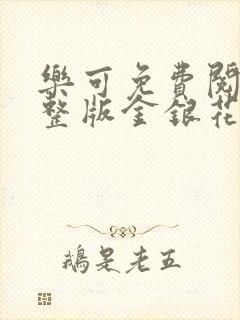 樂可免費閱
整版金銀花
鵝是老五